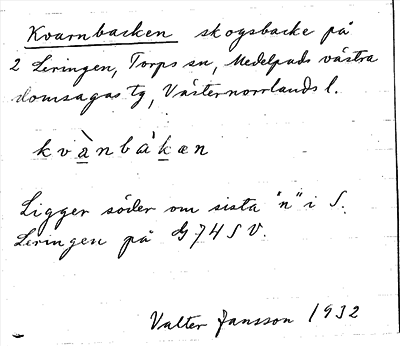 Kvarnbacken skogsbacke på
2 Leringen, Torps sn, Medelpads västra
domsagas tg, Västernorrlands l.
kvànbákæn
Ligger söder om sista "n" i S.
Leringen på G 74 S V.
Valter Jansson 1932